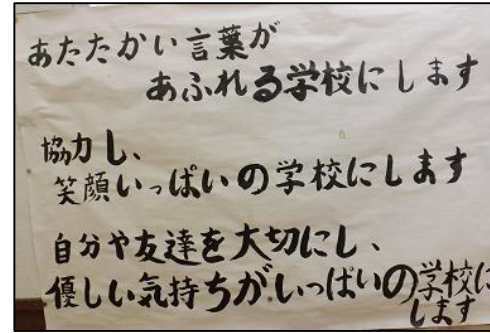 あたたかい言葉が
あふれる学校にします
協力し、
笑顔いっぱいの学校にします
自分や友達を大切にし、
優しい気持ちがいっぱいの学校に
します